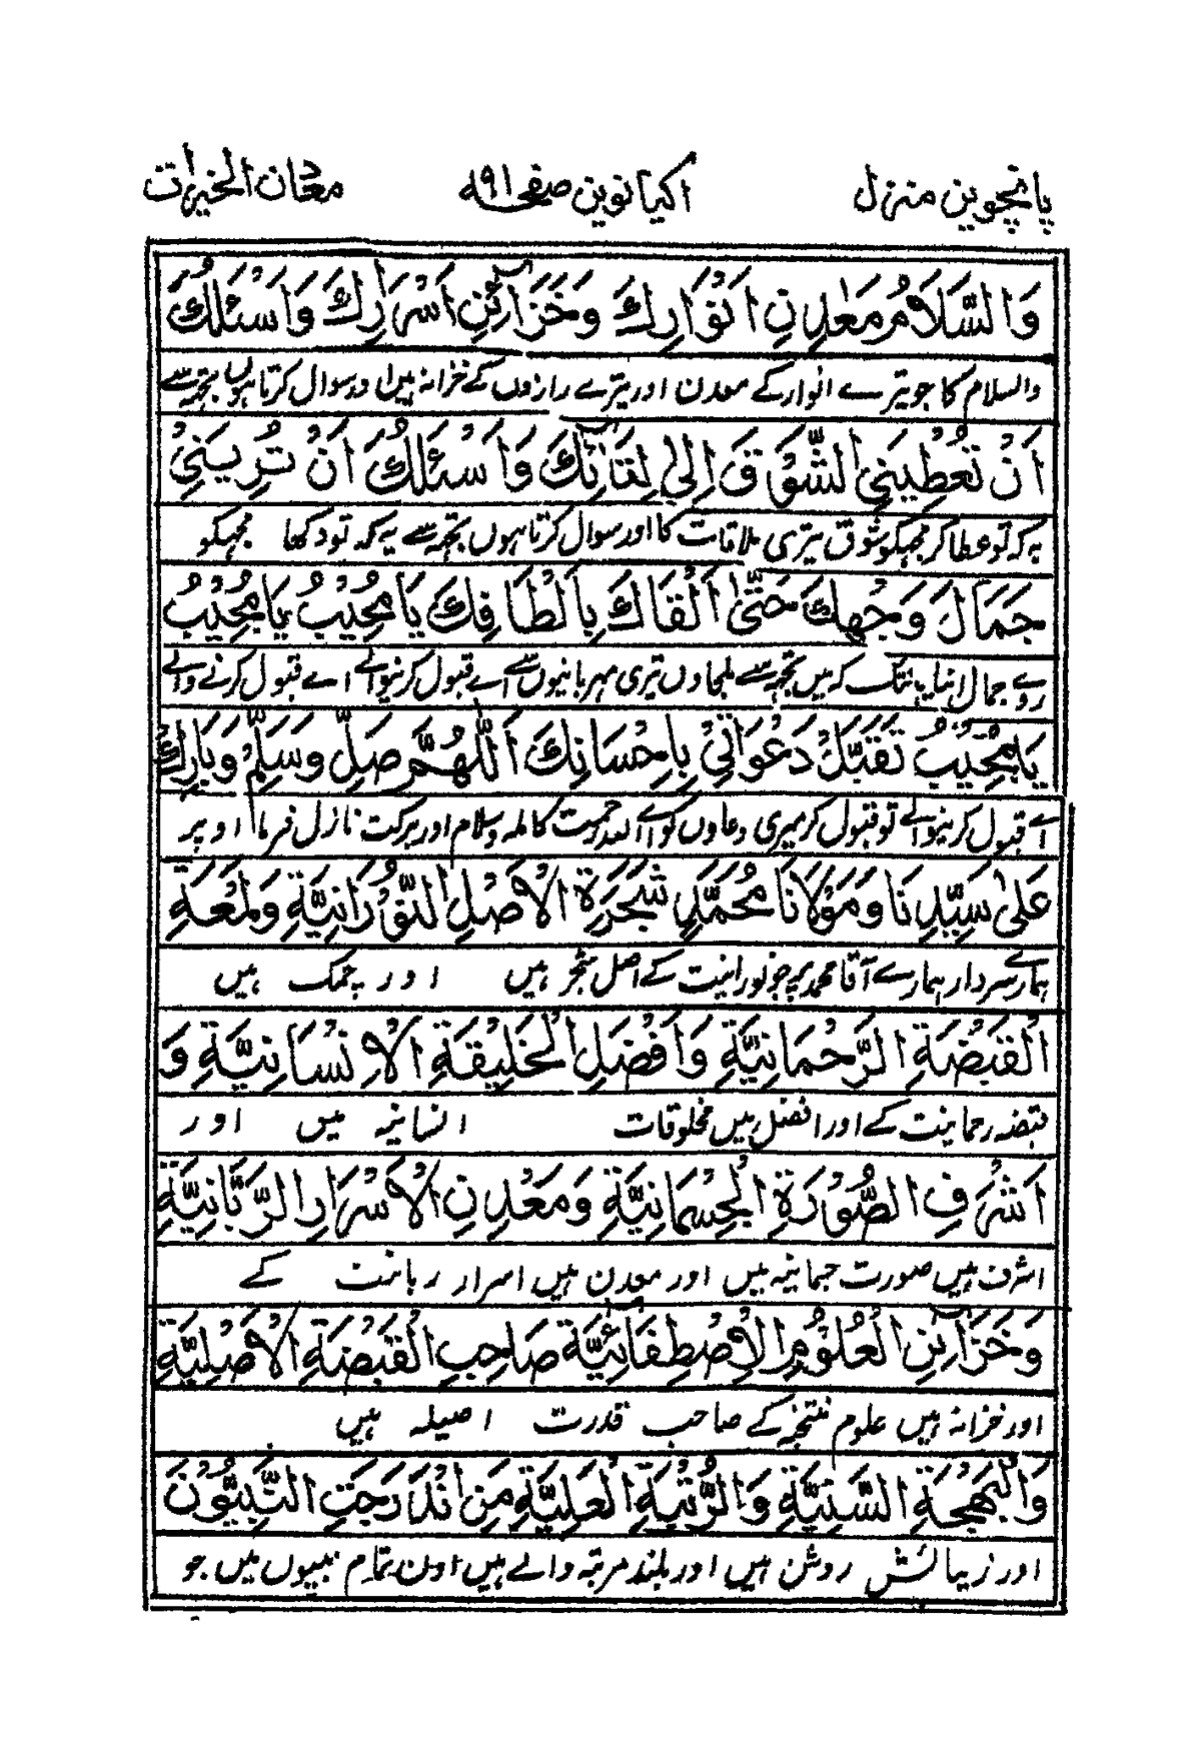 پانچویں منزل اکیانویں صفحہ ۹۱ معدن الخیرات
وَالسَّلَامُ مَعْدِنِ اَنْوَارِكَ وَخَزَآئِنِ اَسْرَارِكَ وَاَسْئَلُكَ
والسلام کا جو تیرے انوار کے معدن اور تیرے رازوں کے خزانہ ہیں اور سوال کرتا ہوں تجھ سے
اَنْ تُعْطِيَنِي الشَّوْقَ اِلٰى لِقَآئِكَ وَاَسْئَلُكَ اَنْ تُرِيَنِيْ
یہ کہ تو عطا کر مجھکو شوق تیری ملاقات کا اور سوال کرتا ہوں تجھ سے یہ کہ تو دکھا مجھکو
جَمَالَ وَجْهِكَ حَتّٰى اَلْقَاكَ بِاَلْطَافِكَ يَا مُجِيْبُ يَا مُجِيْبُ
روے جمال اپنا یہانتک کہ میں تجھ سے ملجاوں تیری مہربانیوں سے اے قبول کرنیوالے اے قبول کرنے والے
يَا مُجِيْبُ تَقَبَّلْ دَعْوَاتِيْ بِاِحْسَانِكَ اَللّٰهُمَّ صَلِّ وَسَلِّمْ وَبَارِكْ
اے قبول کرنیوالے تو قبول کر میری دعاوں کو اے اللہ رحمت کاملہ و سلام اور برکت نازل فرما اوپر
عَلٰى سَيِّدِنَا وَمَوْلَانَا مُحَمَّدٍ شَجَرَةِ الْاَصْلِ النُّوْرَانِيَّةِ وَلَمْعَةِ
ہمارے سردار ہمارے آقا محمد پر جو نورانیت کے اصل شجر ہیں اور چمک ہیں
الْقَبْضَةِ الرَّحْمَانِيَّةِ وَاَفْضَلِ الْخَلِيْقَةِ الْاِنْسَانِيَّةِ وَ
قبضہ رحمانیت کے اور افضل ہیں مخلوقات انسانیہ میں اور
اَشْرَفِ الصُّوْرَةِ الْجِسْمَانِيَّةِ وَمَعْدِنِ الْاَسْرَارِ الرَّبَّانِيَّةِ
اشرف ہیں صورت جسمانیہ میں اور معدن ہیں اسرار ربانیت کے
وَخَزَآئِنِ الْعُلُوْمِ الْاِصْطِفَآئِيَّةِ صَاحِبِ الْقَبْضَةِ الْاَصْلِيَّةِ
اور خزانہ ہیں علوم کے صاحب قدرت اصیلہ ہیں
وَالْبَهْجَةِ السَّنِيَّةِ وَالرُّتْبَةِ الْعَلِيَّةِ مَنِ انْدَرَجَتِ النَّبِيُّوْنَ
اور زیبائش روشن ہیں اور بلند مرتبہ والے ہیں اون تمام نبیوں میں جو